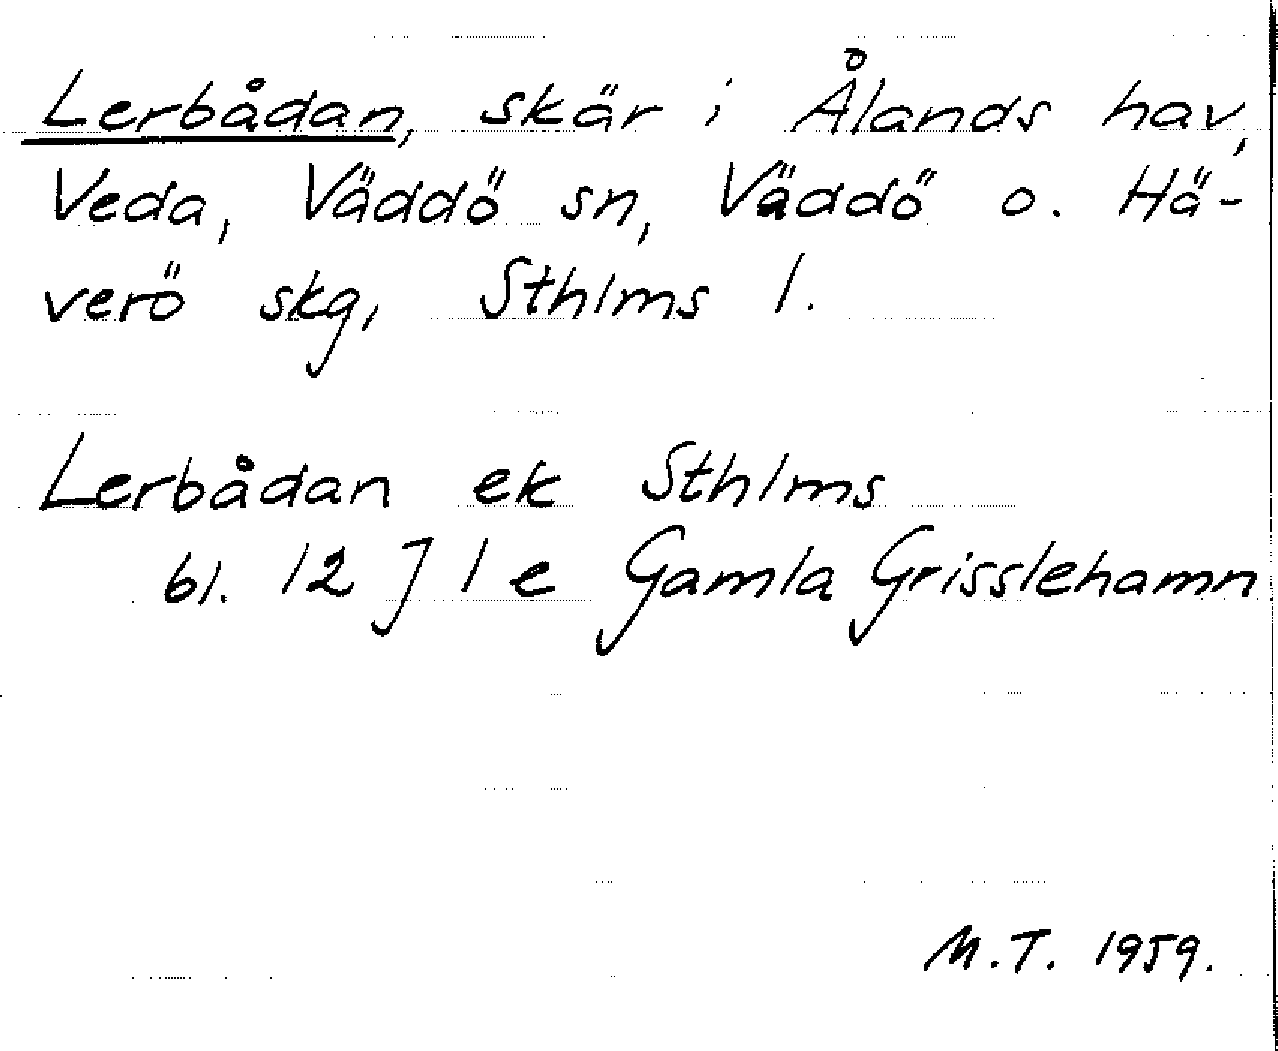 Lerbådan, skär i Ålands hav,
Veda, Väddö sn, Väddö o. Hä-
verö skg, Sthlms l.
Lerbådan ek Sthlms
bl. 12 J 1 e Gamla Grisslehamn
M.T. 1959.